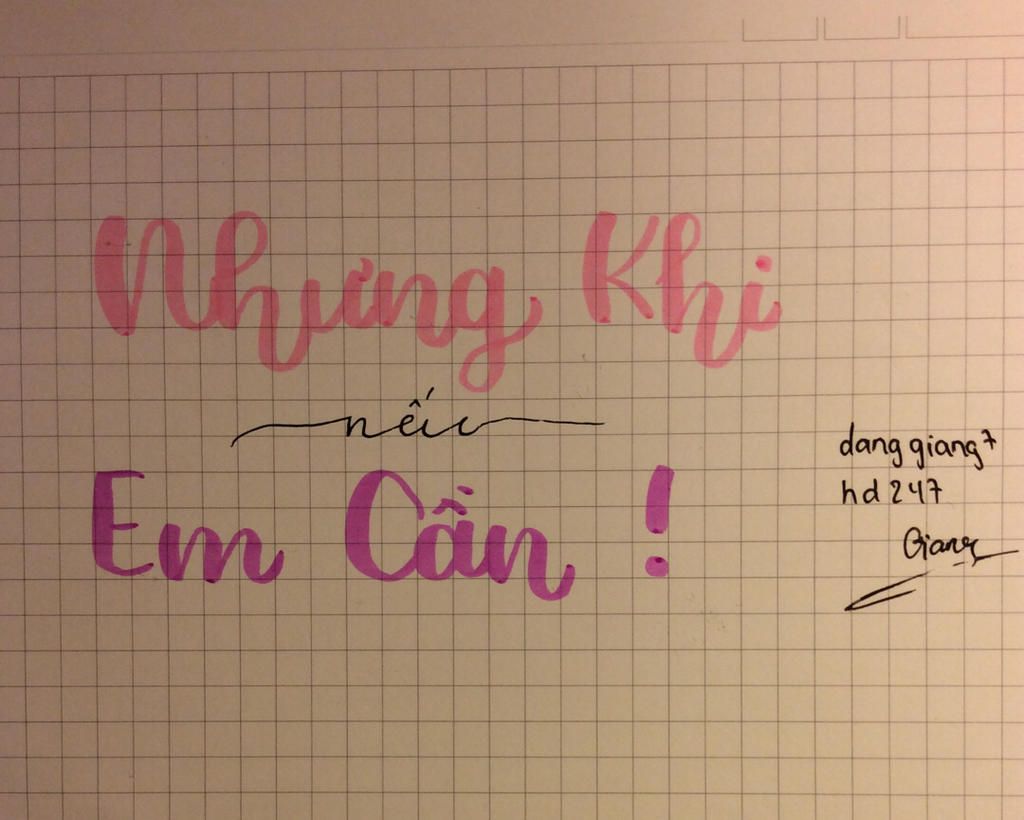 Nhưng Khi
nếu
Em Cần !
dang giang 7
hd 247
Giang